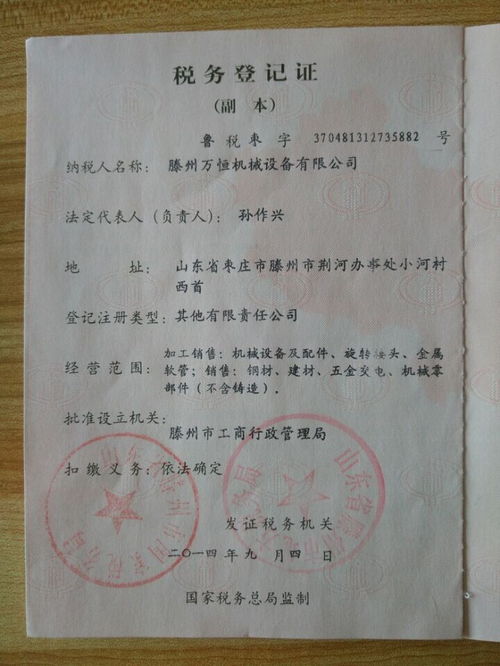 税务登记证
（副 本）
鲁 税 枣 字 370481312735882 号
纳税人名称： 滕州万恒机械设备有限公司
法定代表人（负责人）： 孙作兴
地 址： 山东省枣庄市滕州市荆河办事处小河村
西首
登记注册类型： 其他有限责任公司
经营范围： 加工销售：机械设备及配件、旋转接头、金属
软管；销售：钢材、建材、五金交电、机械零
部件（不含铸造）。
批准设立机关：
滕州市工商行政管理局
扣缴义务： 依法确定
发证税务机关
二〇一四 年 九 月 四 日
国家税务总局监制